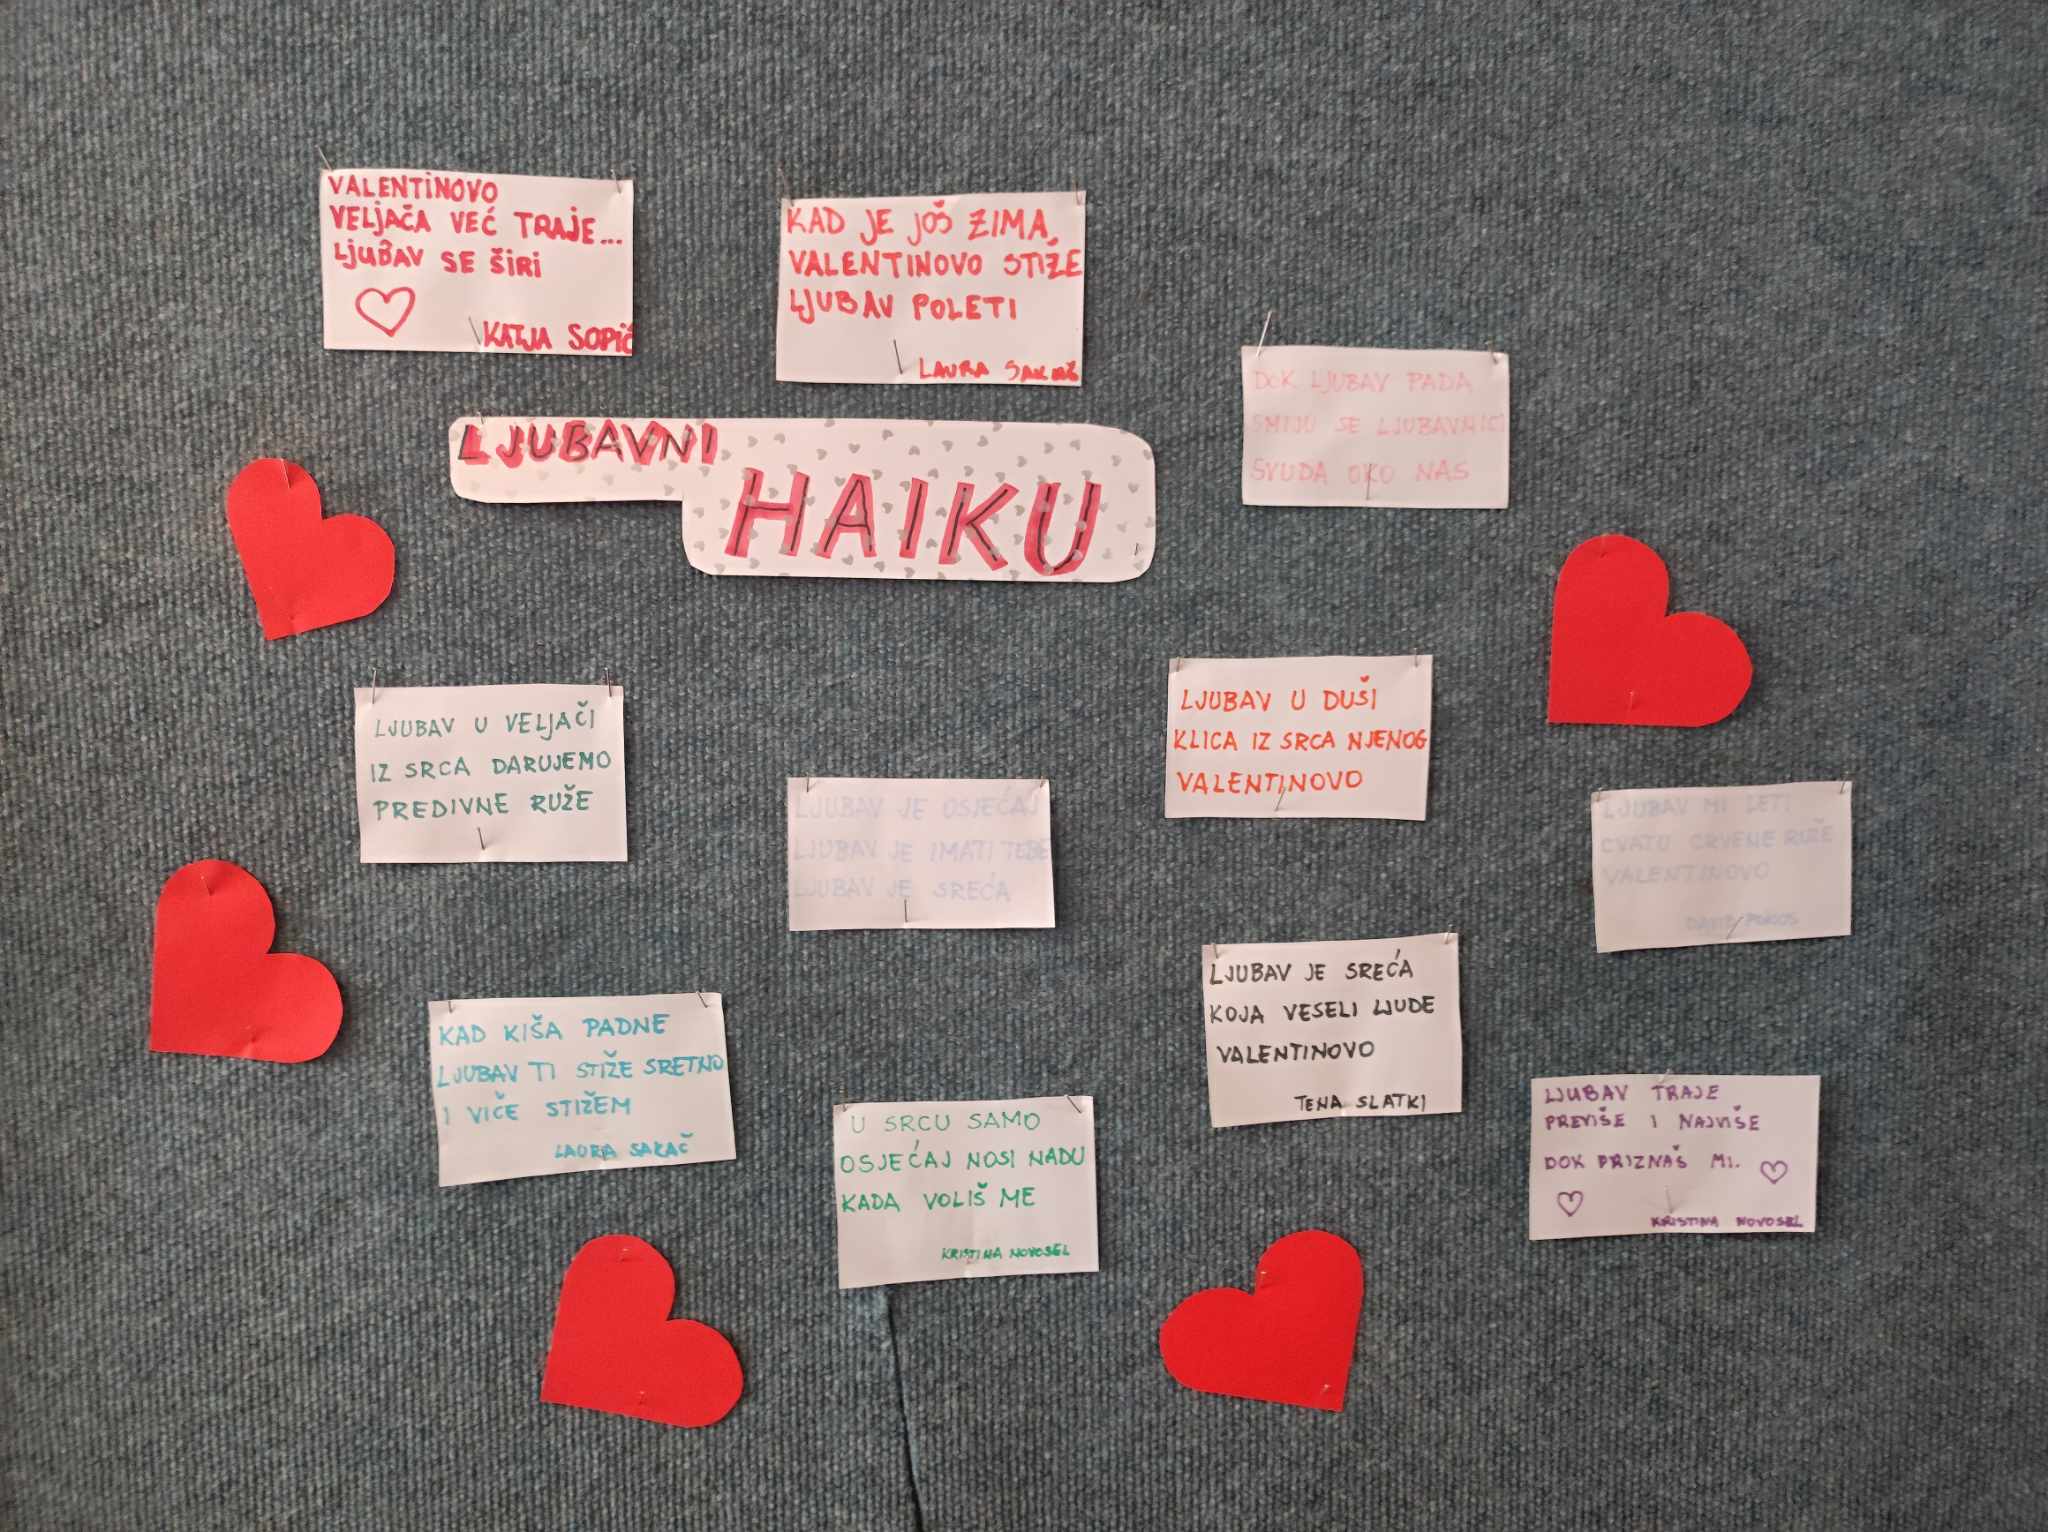 VALENTINOVO
VELJAČA VEĆ TRAJE...
LJUBAV SE ŠIRI
KATJA SOPIĆ
KAD JE JOŠ ZIMA,
VALENTINOVO STIŽE
LJUBAV POLETI
LAURA
DOK LJUBAV PADA
SMIJU SE LJUBAVNICI
SVUDA OKO NAS
LJUBAVNI
HAIKU
LJUBAV U VELJAČI
IZ SRCA DARUJEMO
PREDIVNE RUŽE
LJUBAV JE OSJEĆAJ
LJUBAV JE IMATI TEBE
LJUBAV JE SREĆA
LJUBAV U DUŠI
KLICA IZ SRCA NJENOG
VALENTINOVO
LJUBAV MI LETI
CVATU CRVENE RUŽE
VALENTINOVO
DAVID
KAD KIŠA PADNE
LJUBAV TI STIŽE SRETNO
I VIČE STIŽEM
LAURA SAKAČ
U SRCU SAMO
OSJEĆAJ NOSI NADU
KADA VOLIŠ ME
KRISTINA NOVOSEL
LJUBAV JE SREĆA
KOJA VESELI LJUDE
VALENTINOVO
TENA SLATKI
LJUBAV TRAJE
PREVIŠE I NAJVIŠE
DOK PRIZNAŠ MI.
KRISTINA NOVOSEL